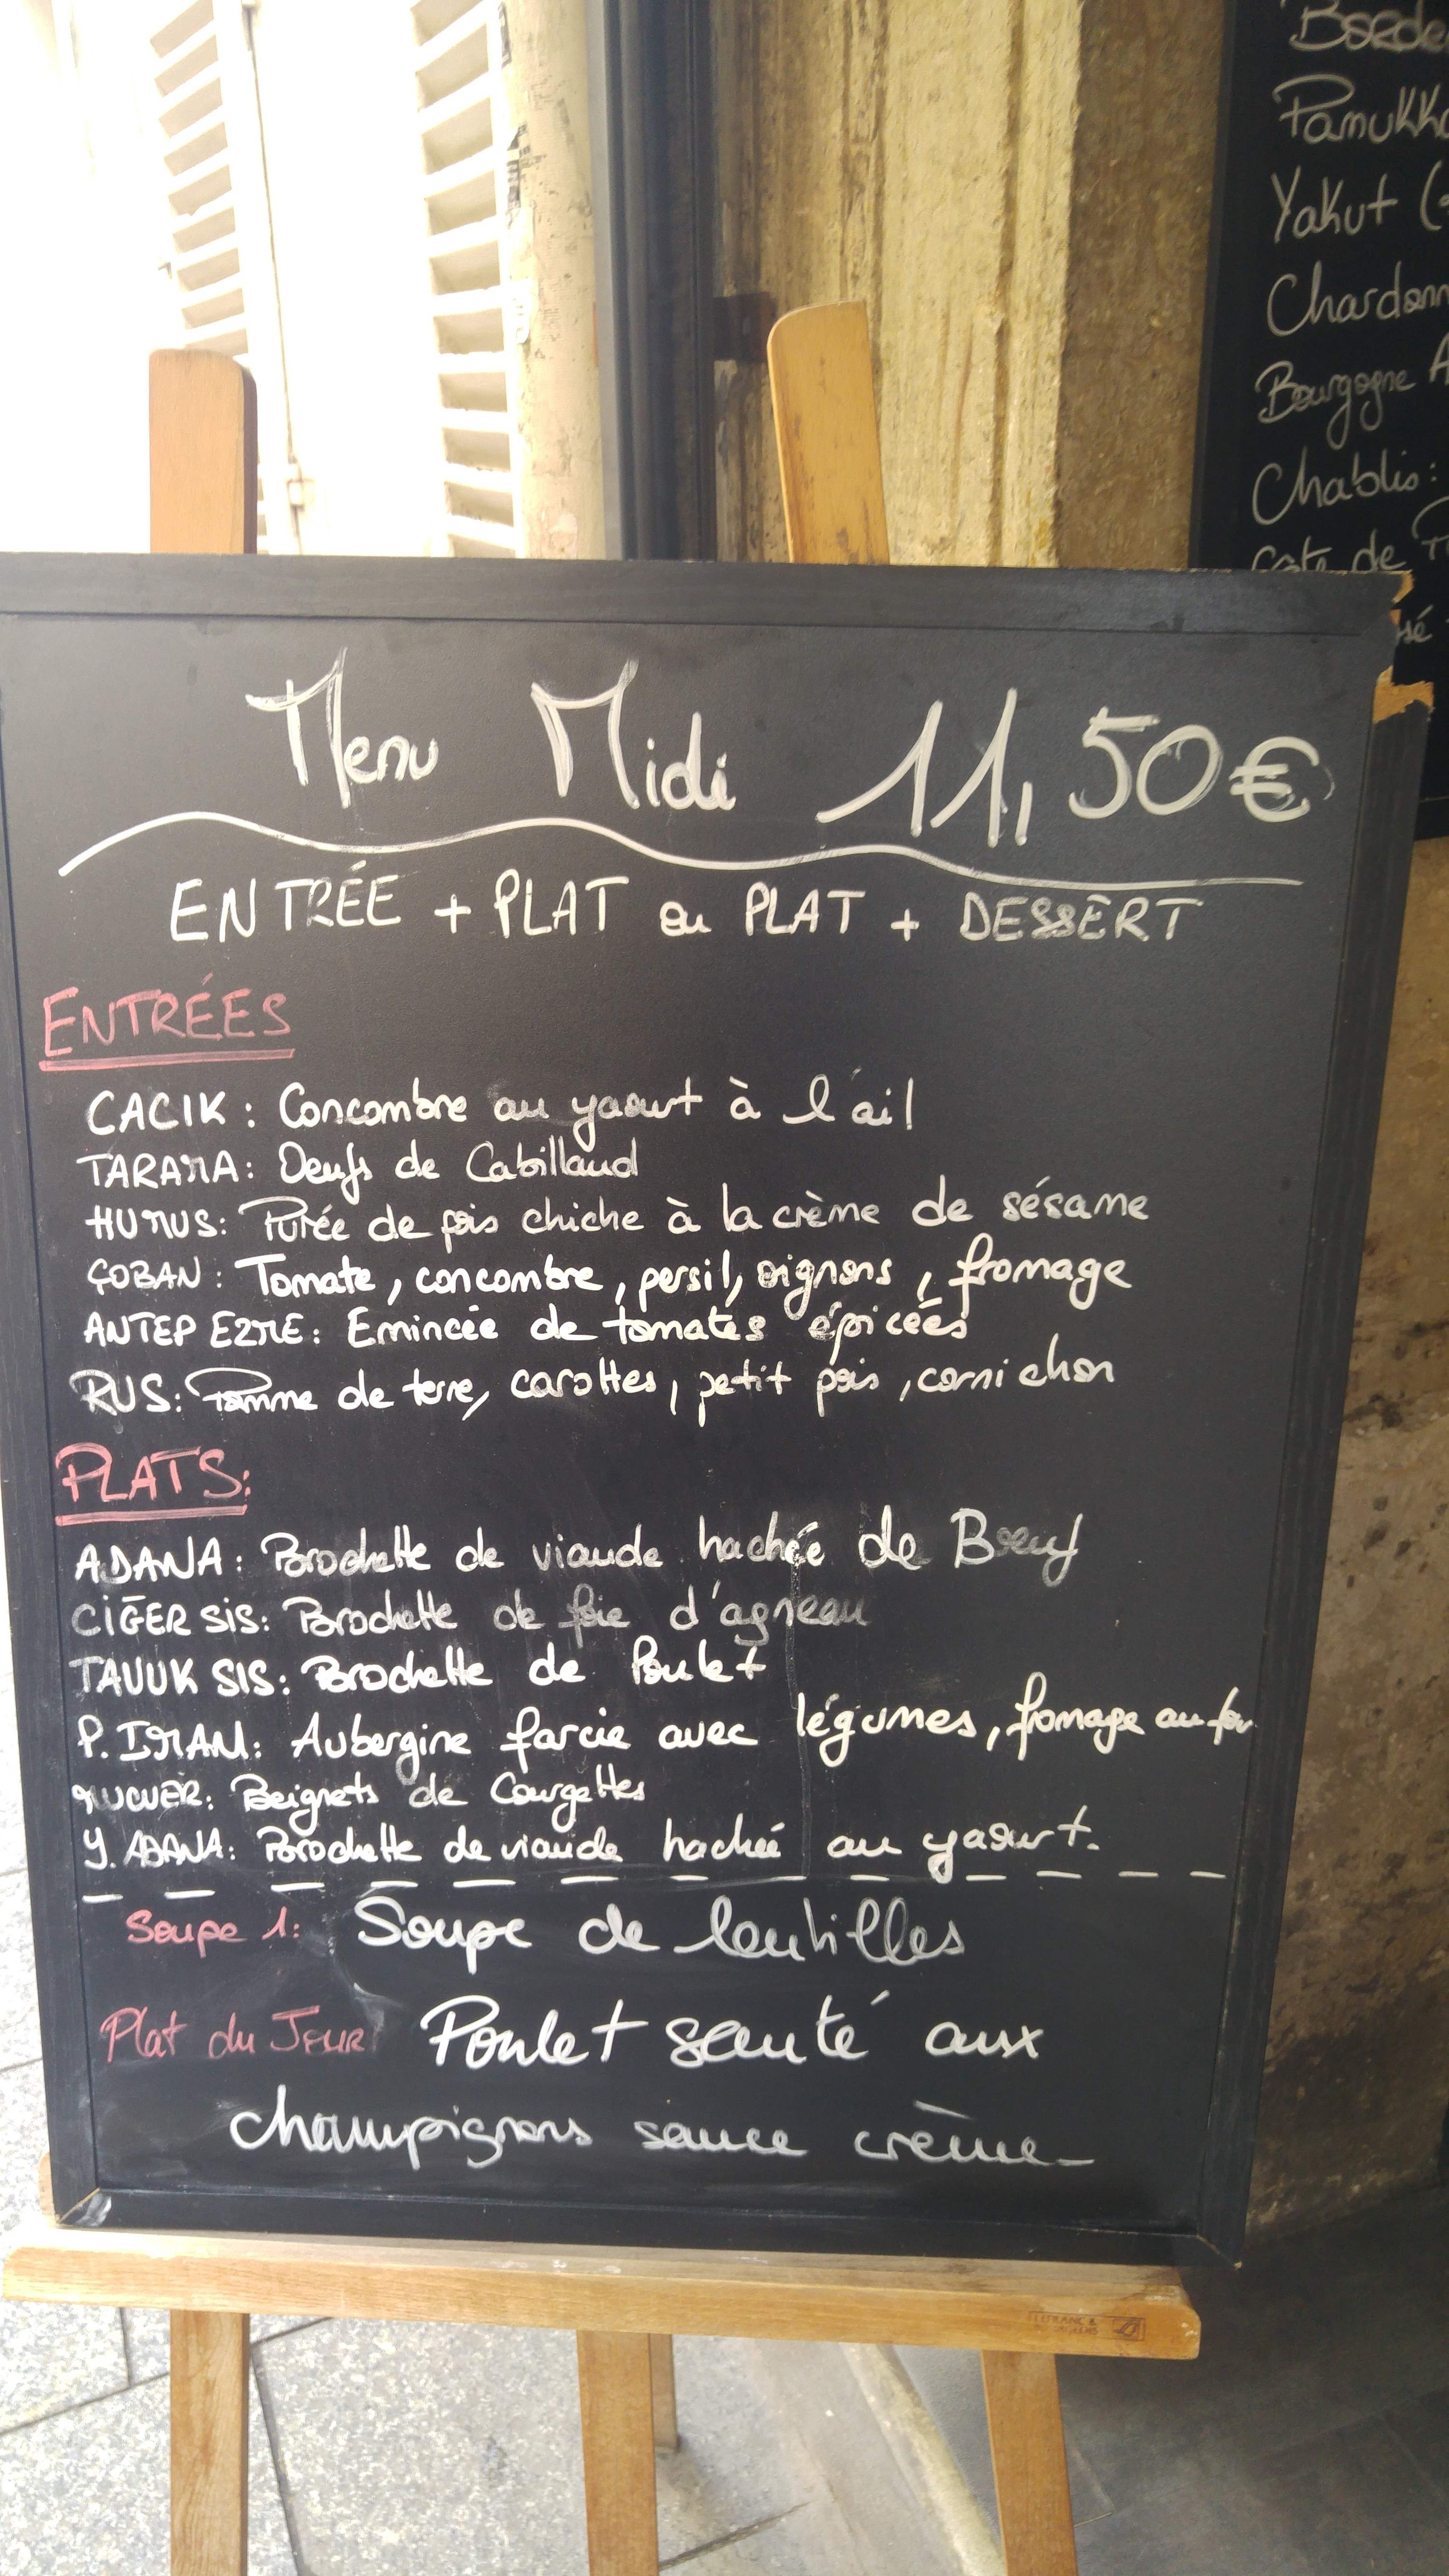 Borde
Pamukk
Yakut (
Chardonn
Bourgogne A
Chablis:
Cote de
sé
Menu Midi 11,50€
ENTRÉE + PLAT ou PLAT + DESSERT
ENTRÉES
CACIK: Concombre au yaourt à l'ail
TARAMA: Oeufs de Cabillaud
HUMUS: Purée de pois chiche à la crème de sésame
ÇOBAN: Tomate, concombre, persil, oignons, fromage
ANTEP EZME: Emincée de tomates épicées
RUS: Pomme de terre, carottes, petit pois, cornichon
PLATS:
ADANA: Brochette de viande hachée de Boeuf
CIĞER SIS: Brochette de foie d'agneau
TAVUK SIS: Brochette de Poulet
P. IMAM: Aubergine farcie avec légumes, fromage au four
MUCVER: Beignets de Courgettes
Y. ADANA: Brochette de viande haché au yaourt.
Soupe 1: Soupe de lentilles
Plat du Jour Poulet sauté aux
champignons sauce crème
LEFRANC &